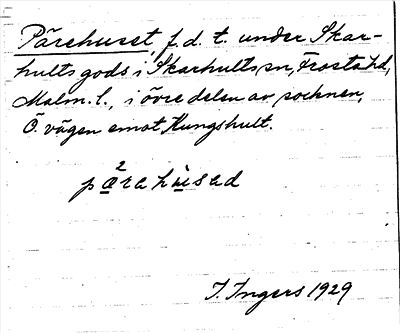 Pärehuset, f.d. t. under Skar-
hults gods i Skarhults sn, Frosta hd,
Malm. l., i övre delen av socknen,
Ö. vägen emot Kungshult.
2
pärahused
I. Ingers 1929